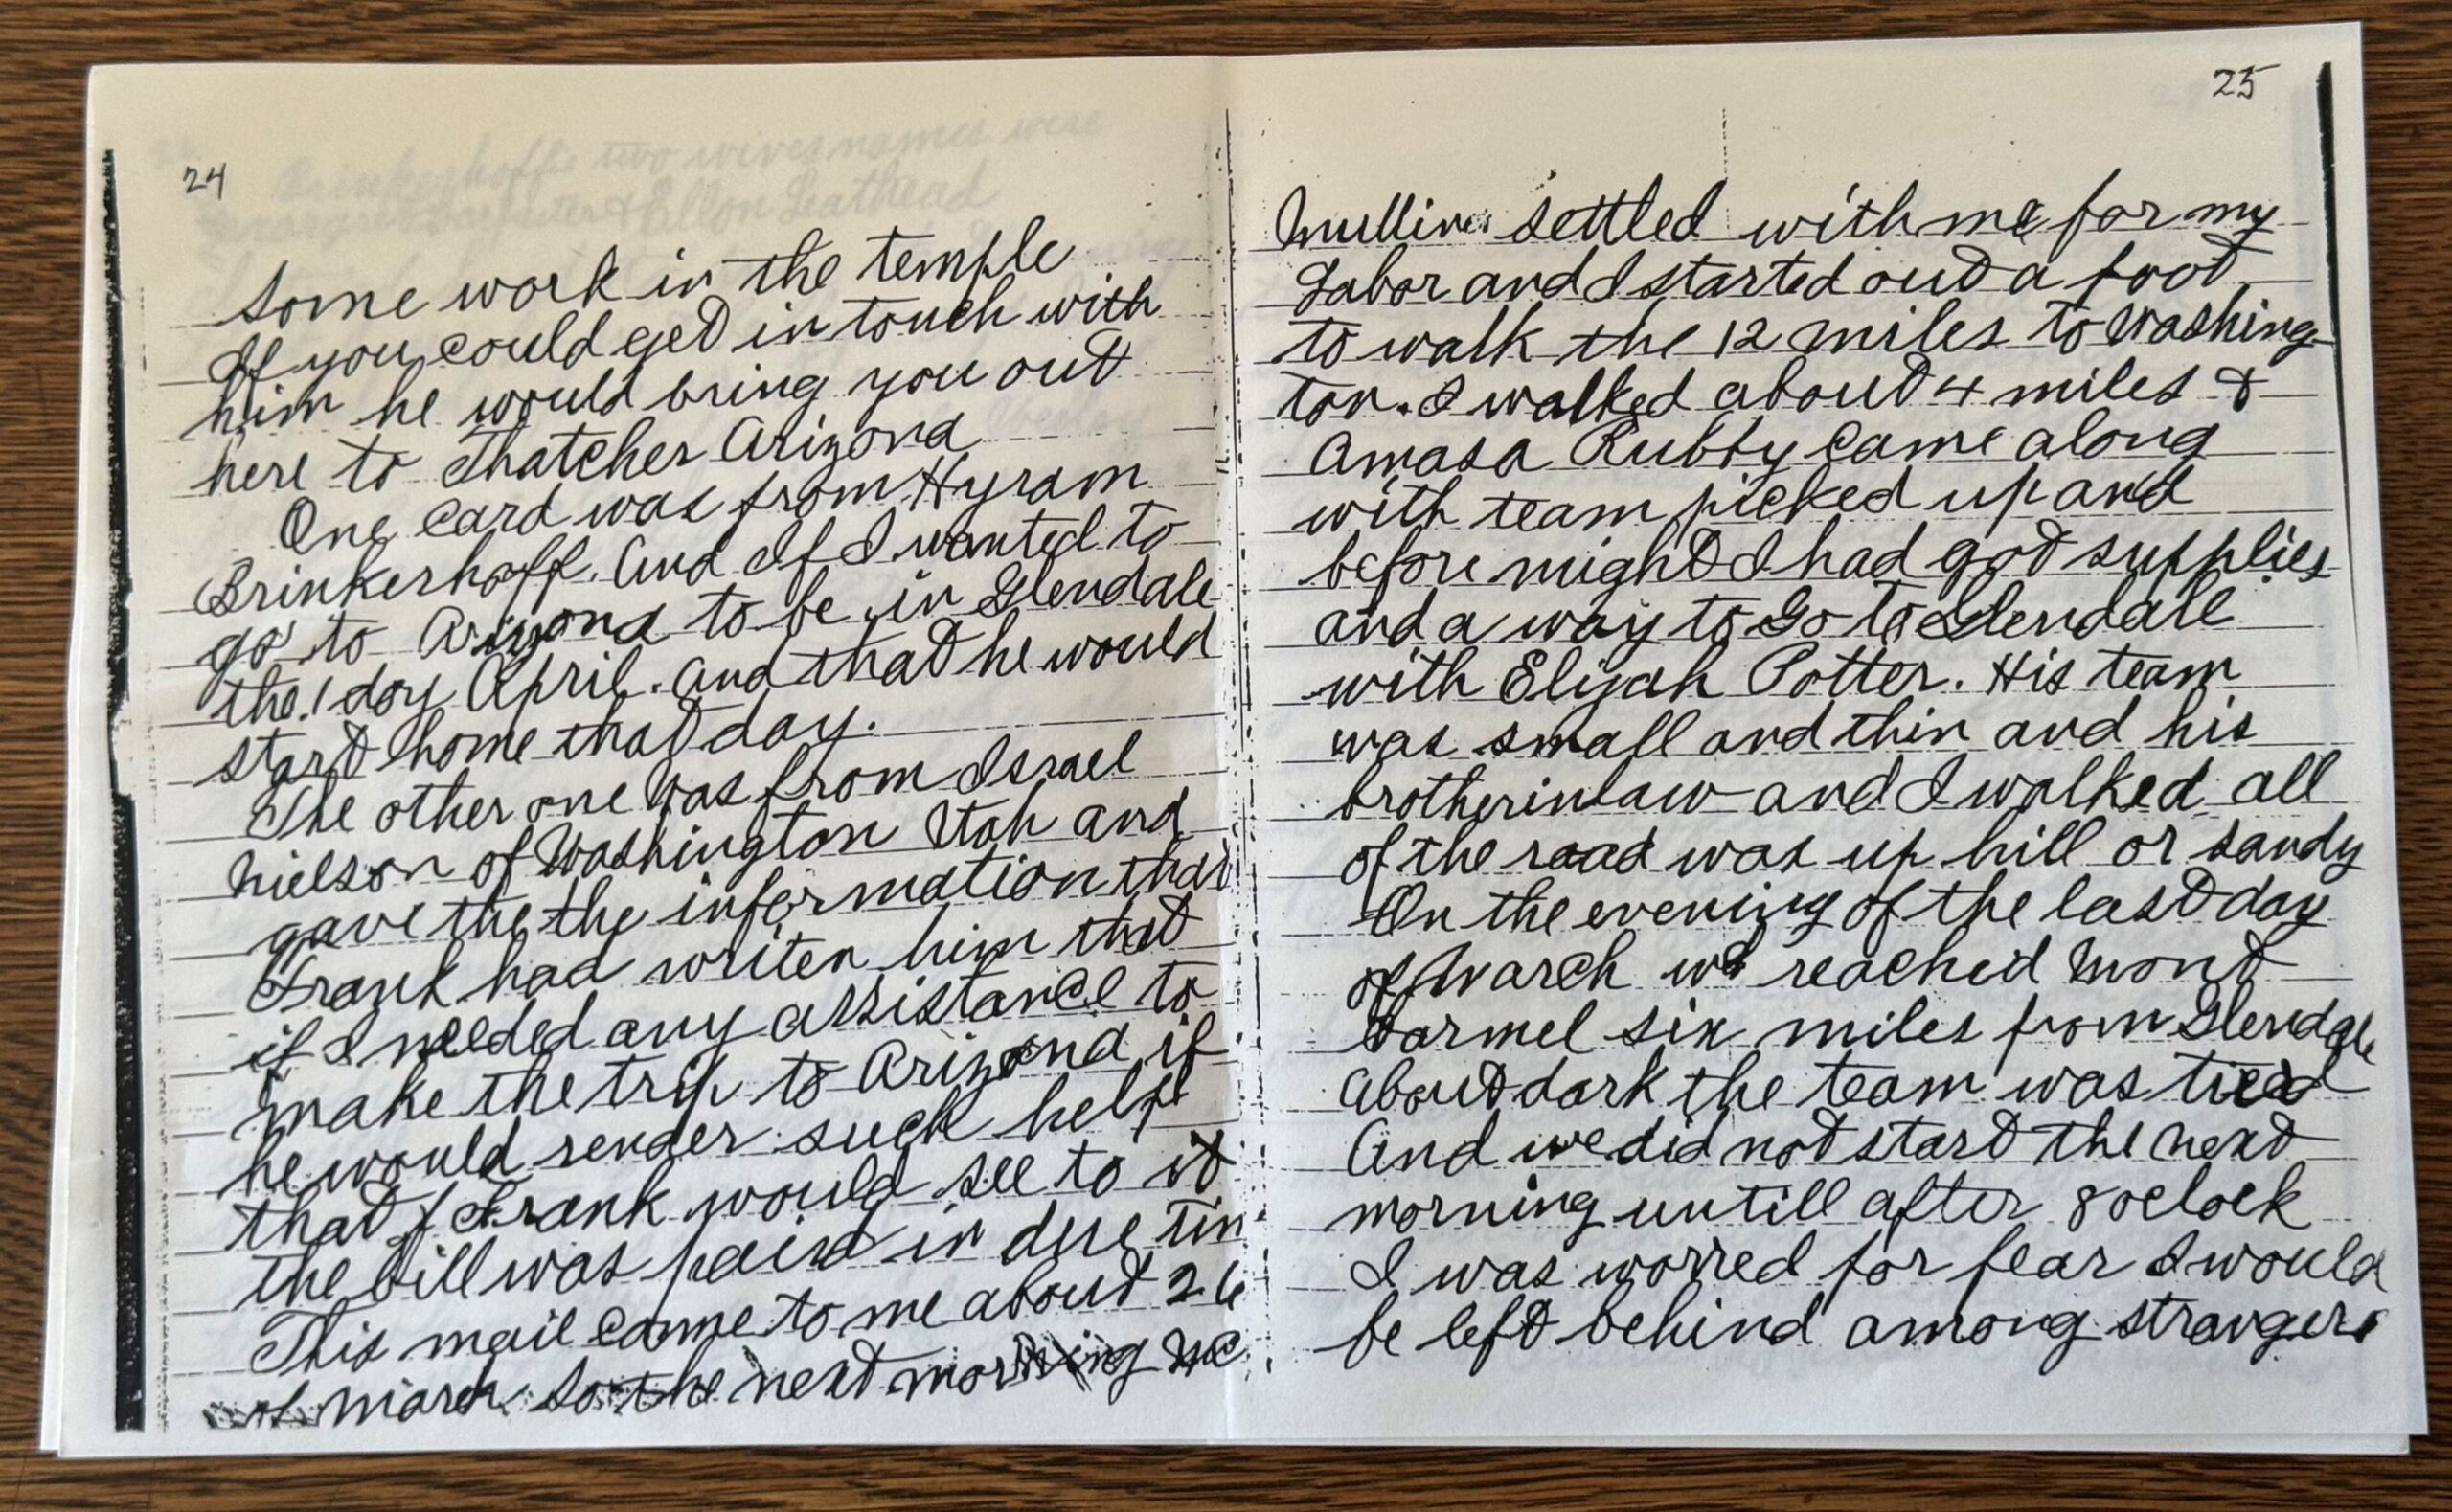 24
some work in the temple
If you could get in touch with
him he would bring you out
here to Thatcher Arizona
One card was from Hyram
Brinkerhoff. And If I wanted to
go to Arizona to be in Glendale
the 1 day April. and that he would
start home that day.
The other one was from Israel
Nielson of Washington Utah and
gave the the information that
Frank had writen him that
if I needed any assistance to
make the trip to Arizona if
he would render such help
that Frank would see to it
the bill was paid in due tim
This mail came to me about 26
of March so the next morning Mc
25
Mullins settled with me for my
Labor and I started out a foot
to walk the 12 miles to Washing-
ton. I walked about 4 miles &
Amasa came along
with team picked up and
before might I had got supplies
and a way to Go to Glendale
with Elijah Potter. His team
was small and thin and his
brotherinlaw and I walked all
of the road was up hill or sandy
On the evening of the last day
of March we reached Mont
Carmel six miles from Glendale
About dark the team was tired
And we did not start the next
morning untill after 8 oclock
I was worred for fear I would
be left behind among strangers
Brinkerhoffs two wives names were